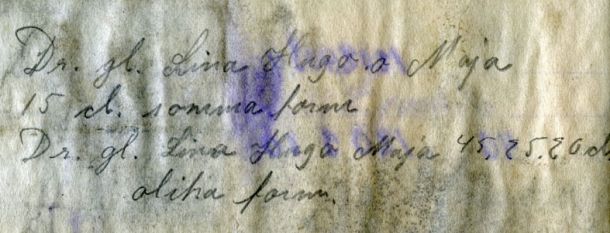 Dr. gl. Lina Hugo. o Maja
15 cl. somma form
Dr. gl. Lina Hugo Maja 45, 25, 20 cl
olika form.